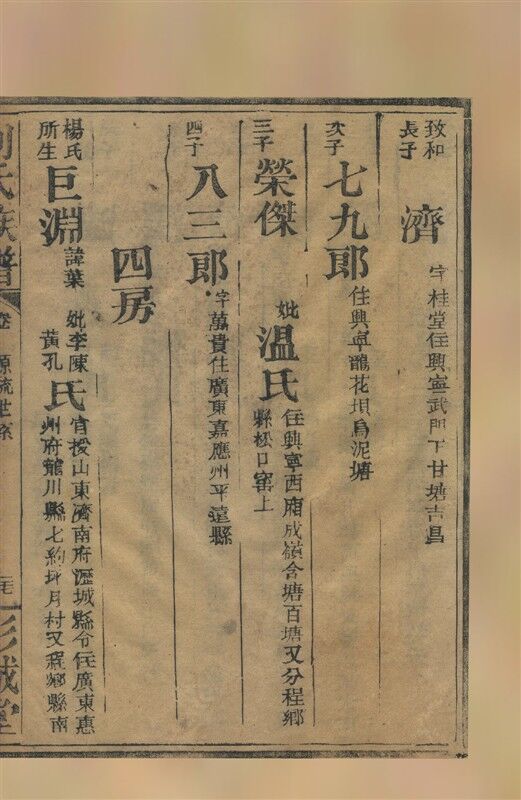 致和
長子
濟
字桂堂住興寧武門下甘塘吉昌
次子
七九郎
住興卓鵲花垻烏泥塘
三子
榮傑
妣
溫氏
住興寧西廂成嶺含塘百塘又分程鄉
縣松口窰上
四子
八三郎
字萬貴住廣東嘉應州平遠縣
四房
楊氏
所生
巨淵
諱葉
妣李陳
黃孔
氏
官授山東濟南府瀝城縣令住廣東惠
州府龍川縣七約坪月村又程鄉縣南
劉氏族譜
卷
源流世系
彭城堂